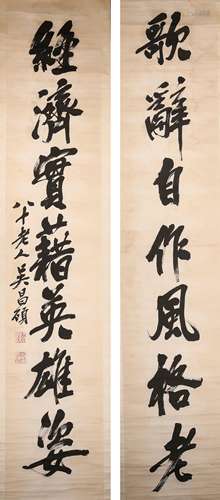 歌辭自作風格老
經濟實藉英雄姿
八十老人吴昌碩